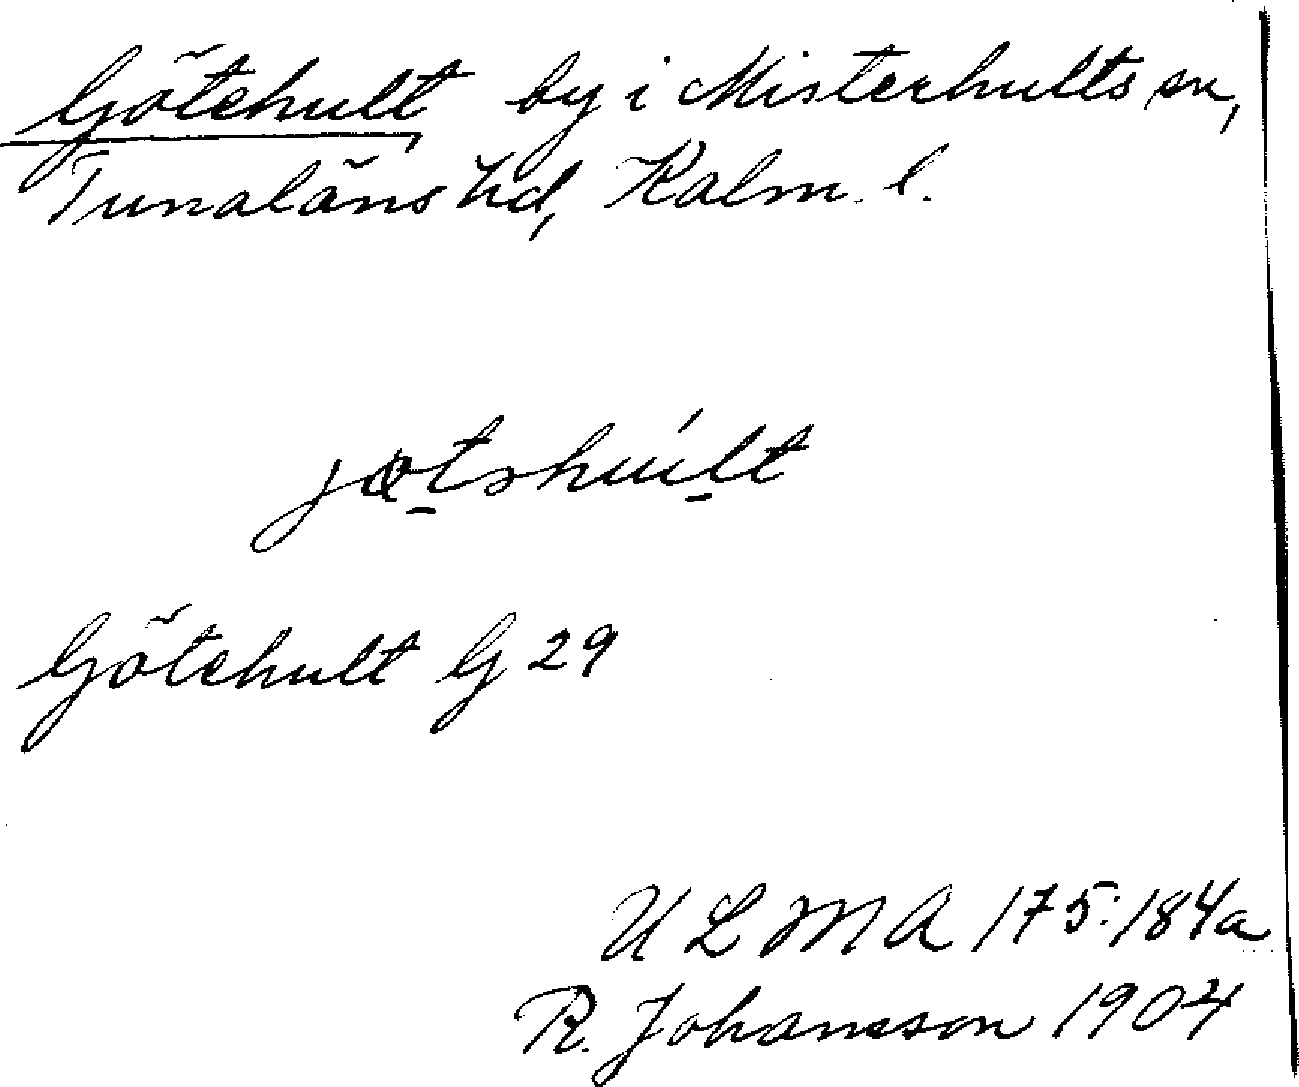 Götehult by i Misterhults sn,
Tunaläns hd, Kalm. l.
jøtshúlt
Götehult G 29
ULMA 175:184a
R. Johansson 1904